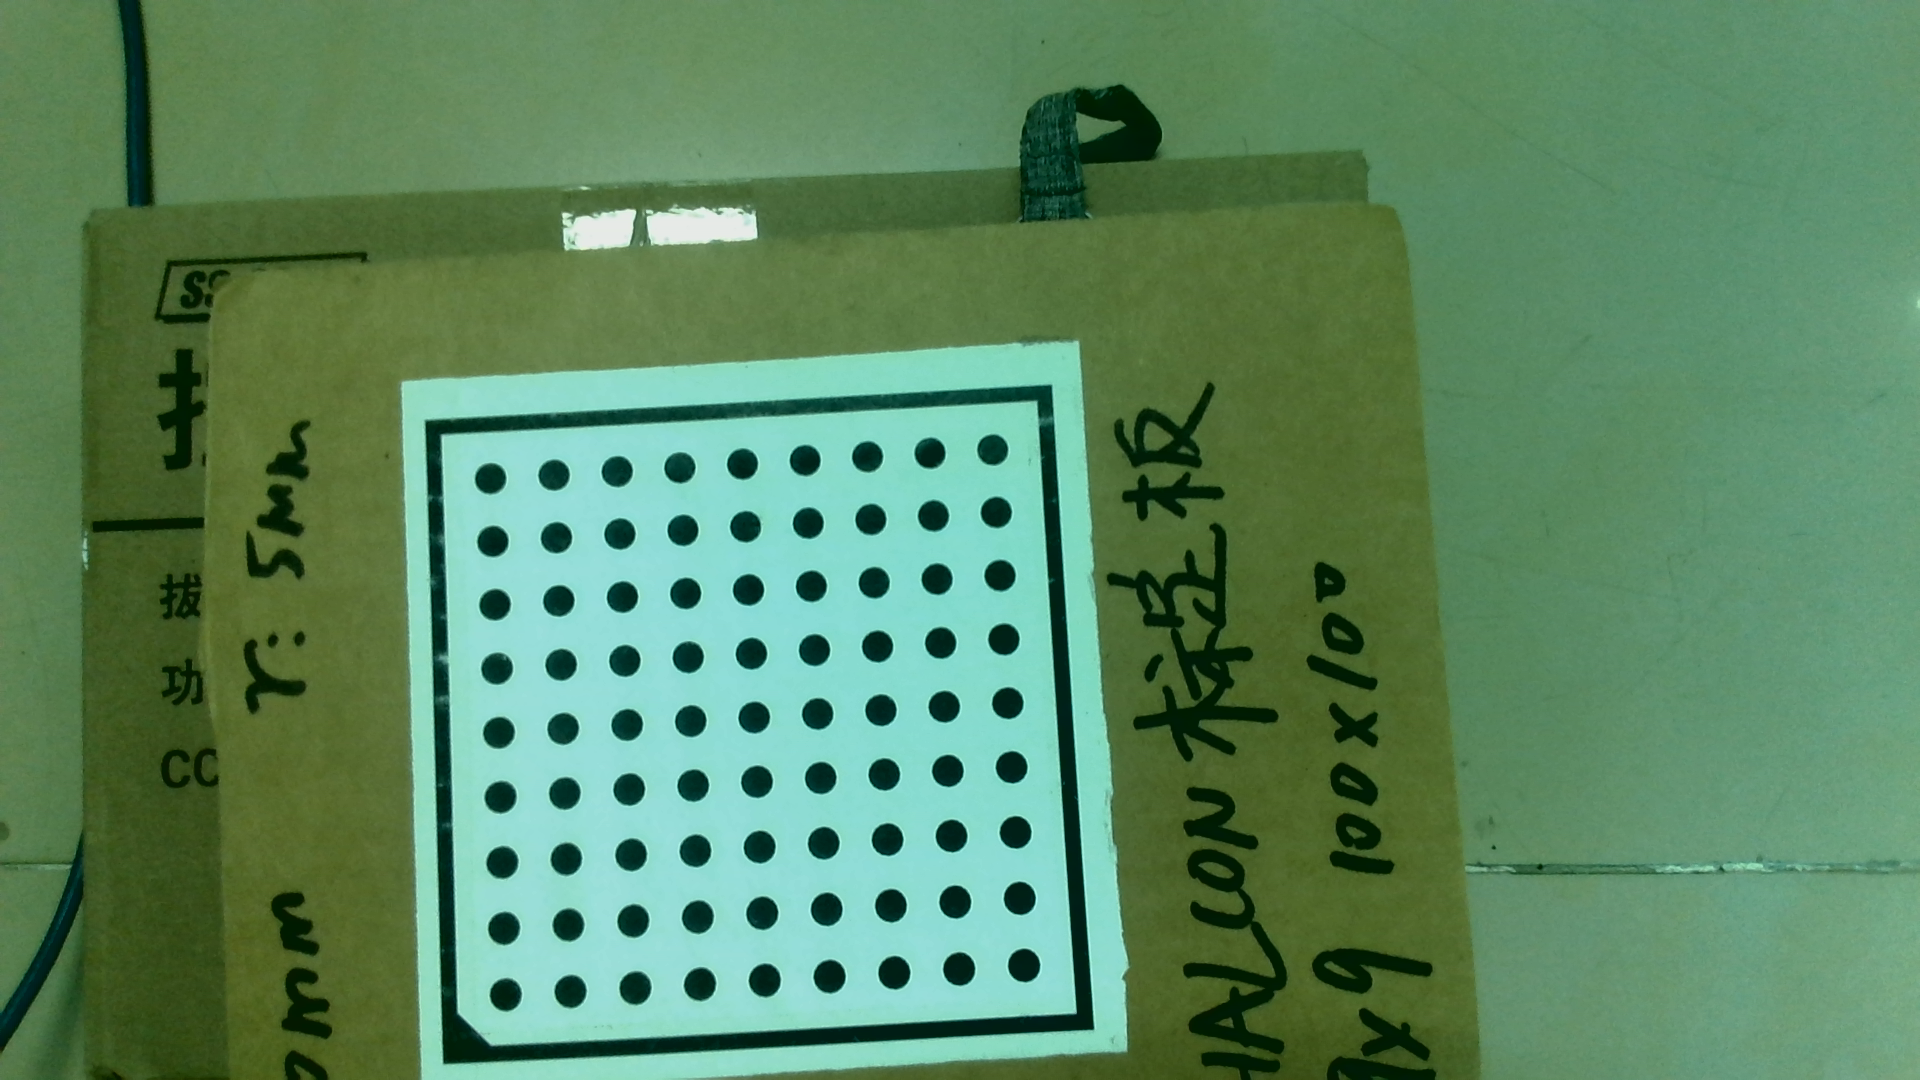 拔
功
r: 5mm
0mm
HALCON 标定板
9x9 100x100